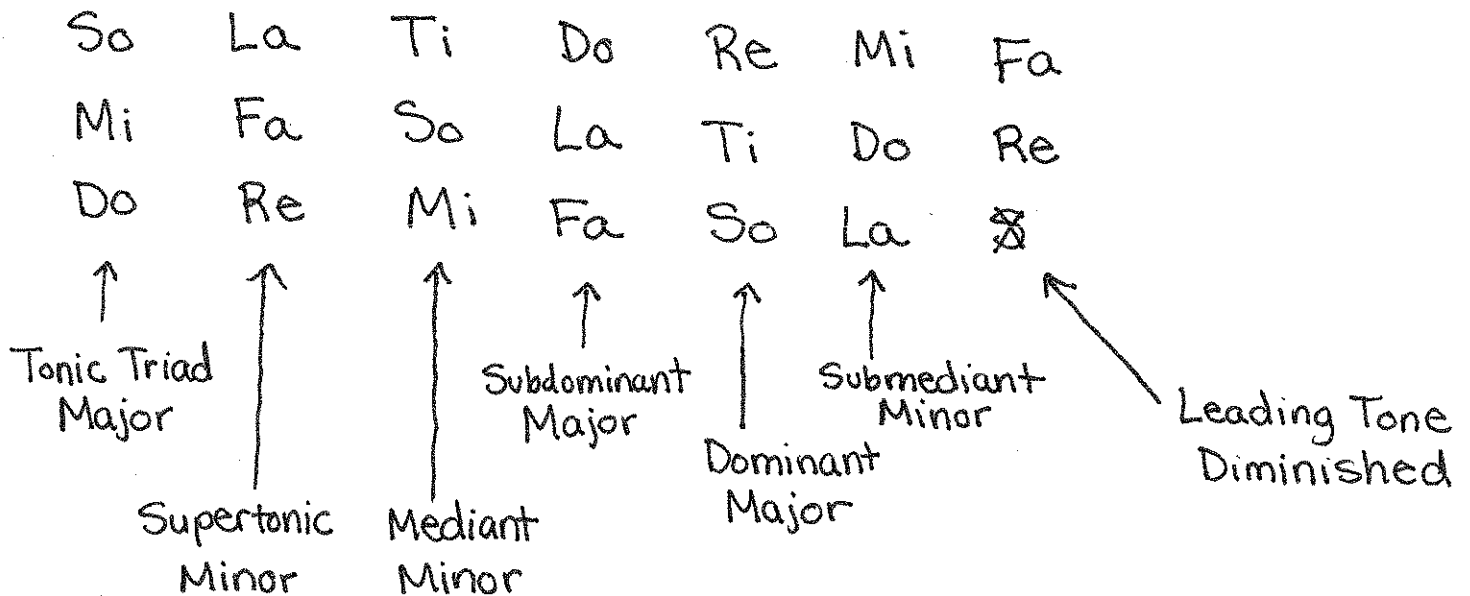 So La Ti Do Re Mi Fa
Mi Fa So La Ti Do Re
Do Re Mi Fa So La
Tonic Triad
Major
Supertonic
Minor
Mediant
Minor
Subdominant
Major
Dominant
Major
Submediant
Minor
Leading Tone
Diminished